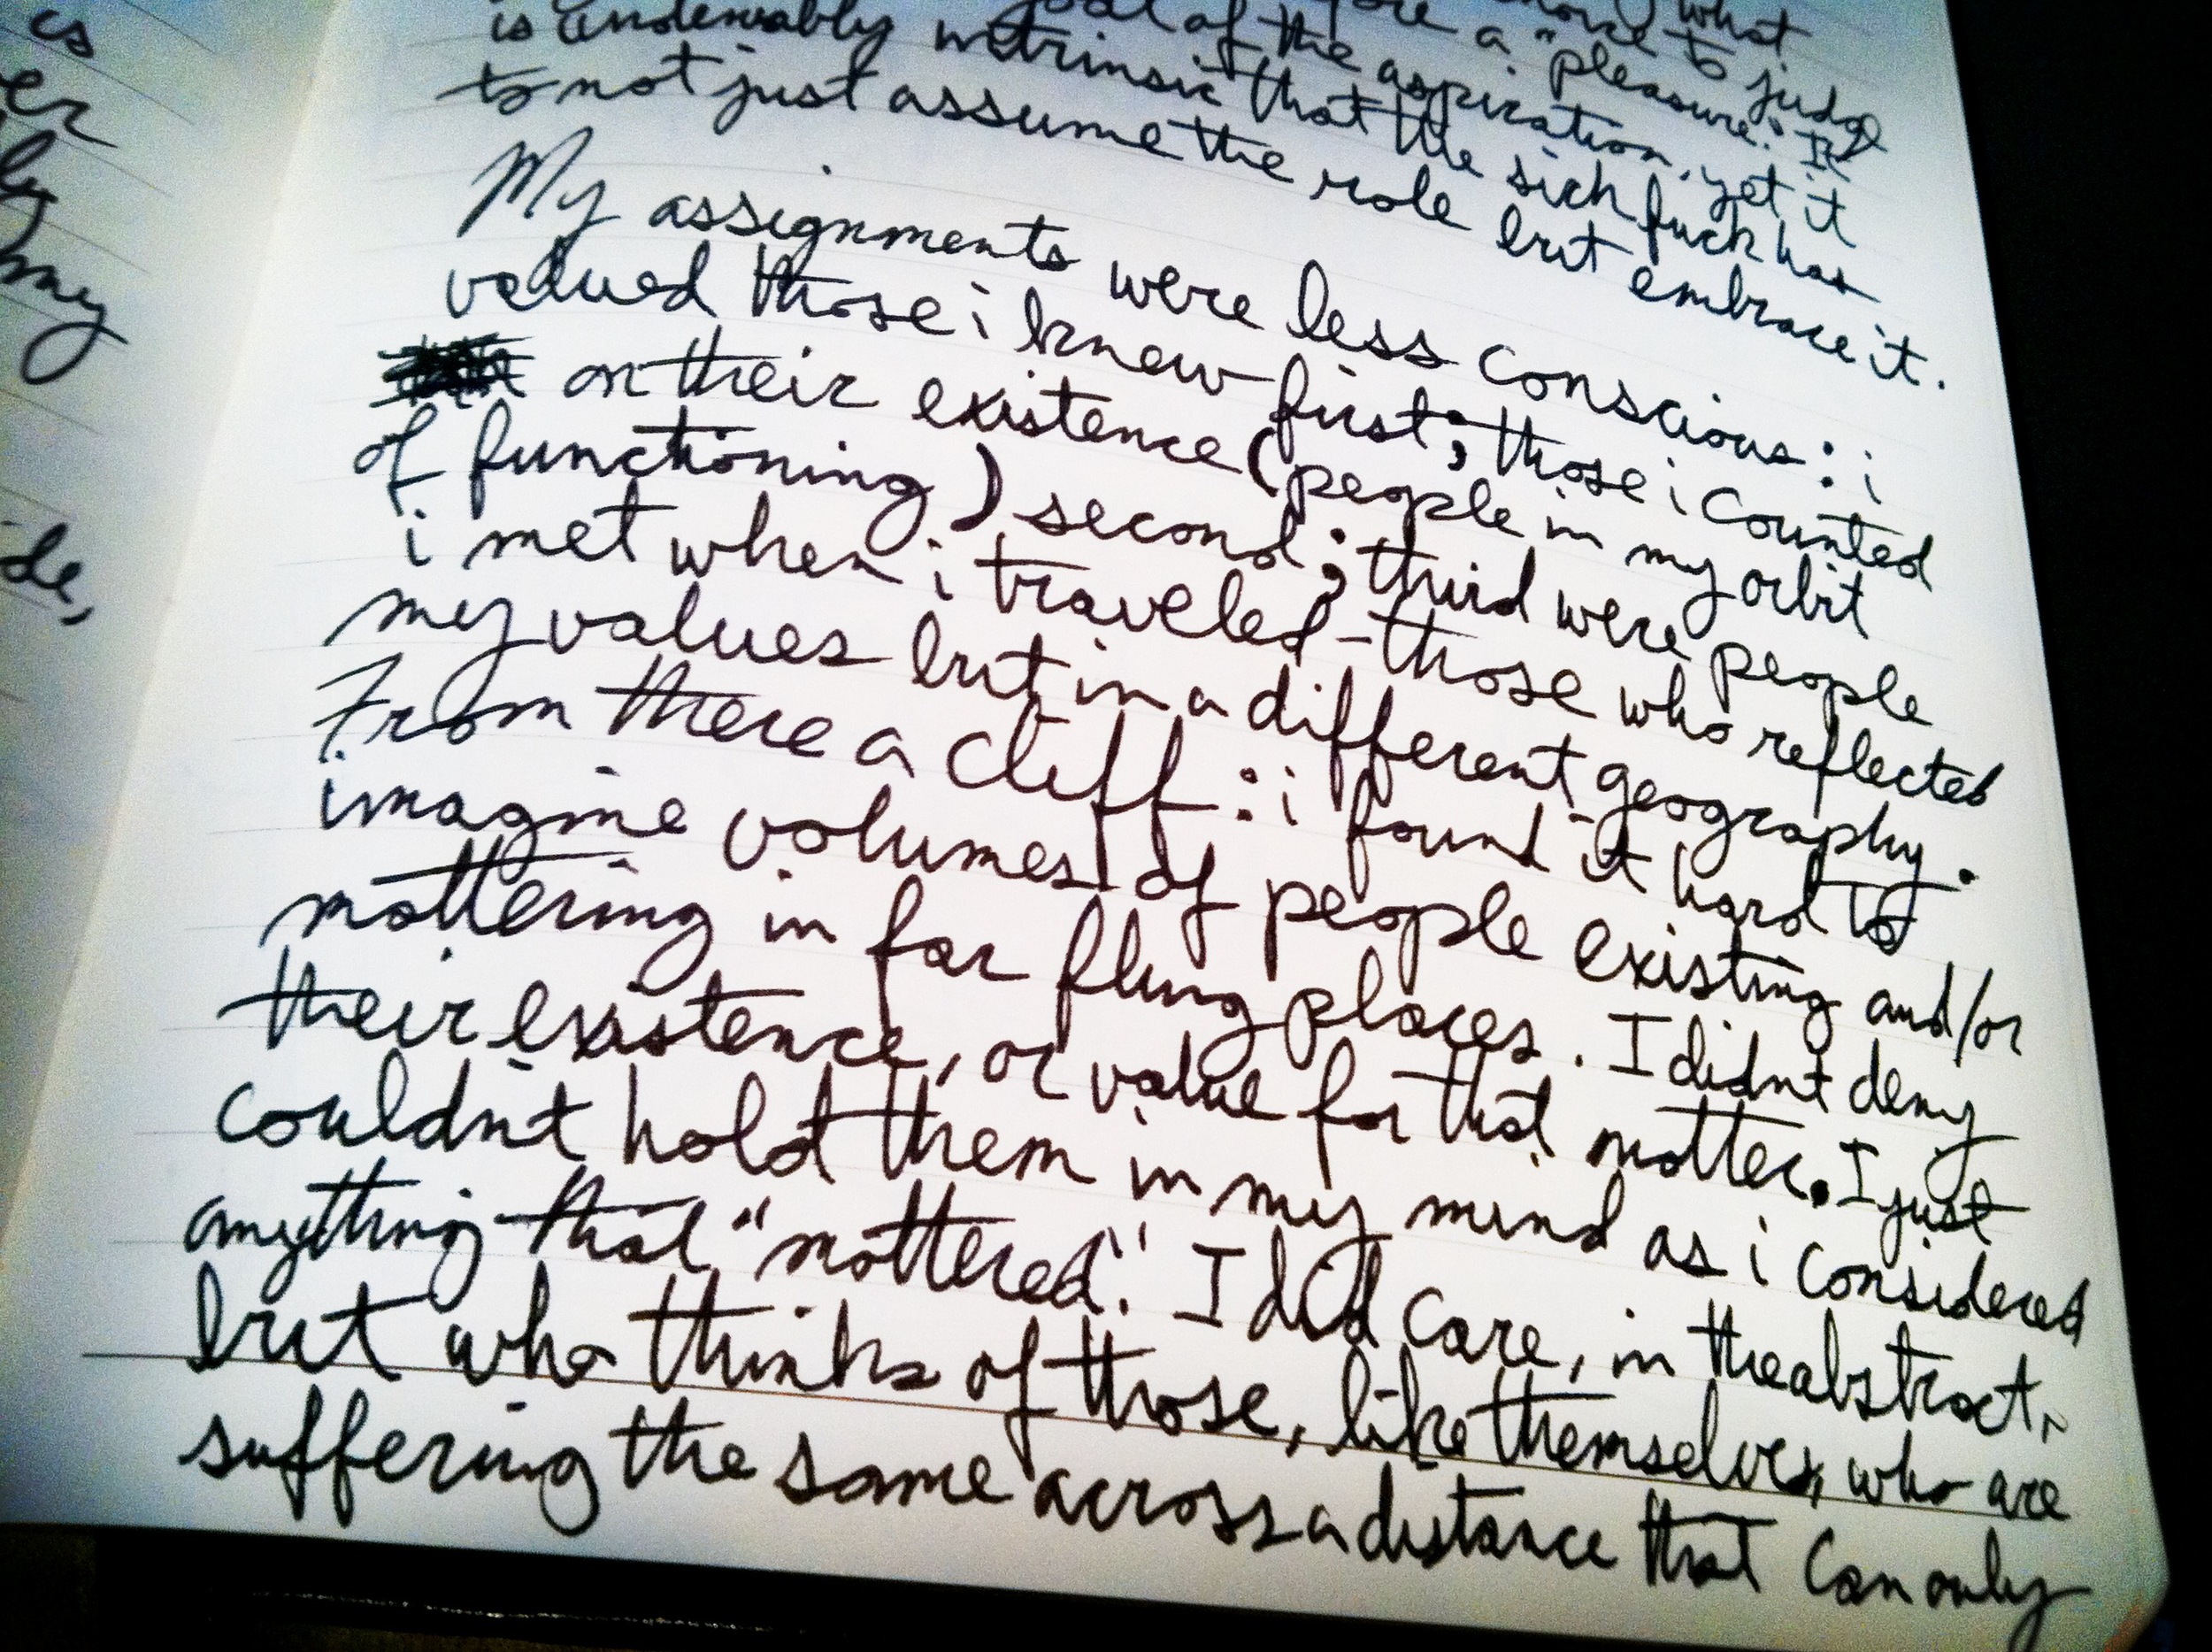 cs
er
ly
my
de,
what
to judge
a "pleasure." It
is undeniably goal of the aspiration, yet it
intrinsic that the sick fuck has
to not just assume the role but embrace it.
My assignments were less conscious: i
valued those i knew first; those i counted
on their existence (people in my orbit
of functioning) second; third were people
i met when i traveled - those who reflected
my values but in a different geography.
From there a cliff: i found it hard to
imagine volumes of people existing and/or
mattering in far flung places. I didnt deny
their existence, or value for that matter. I just
couldnt hold them in my mind as i considered
anything that "mattered." I did care, in the abstract,
but who thinks of those, like themselves, who are
suffering the same across a distance that can only